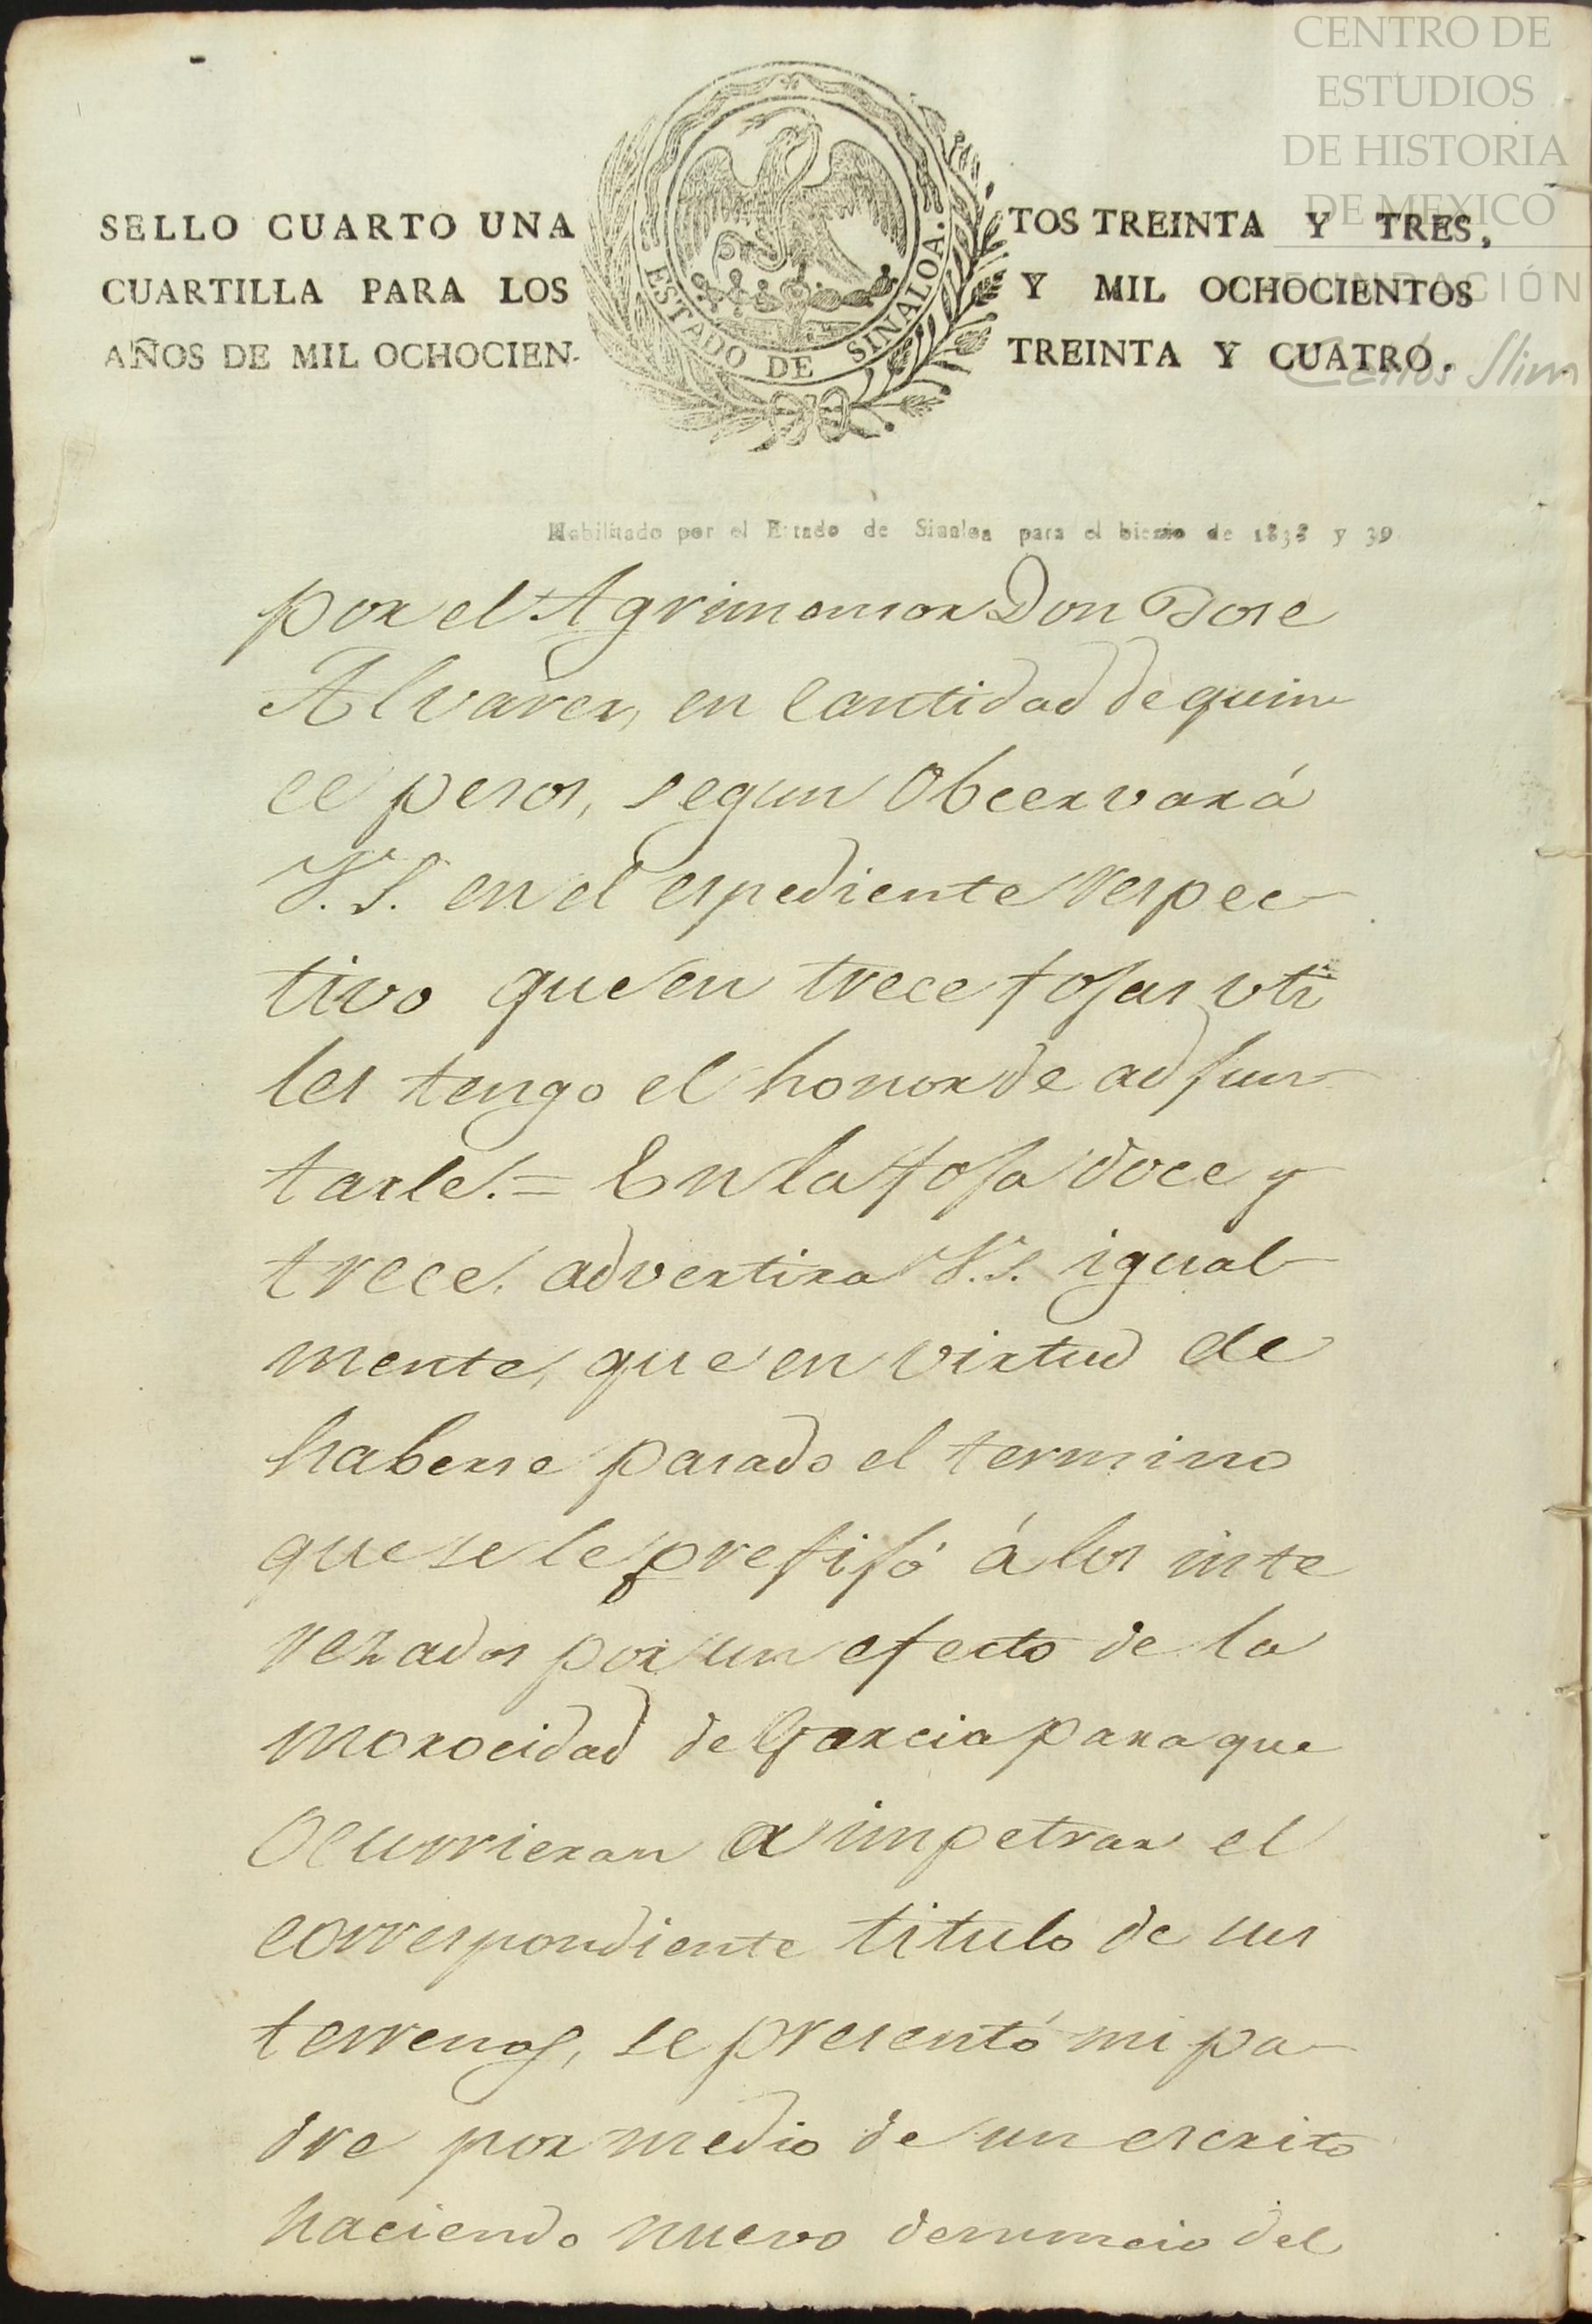 CENTRO DE
ESTUDIOS
DE HISTORIA
DE MEXICO
FUNDACIÓN
Carlos Slim
SELLO CUARTO UNA
CUARTILLA PARA LOS
AÑOS DE MIL OCHOCIEN-
ESTADO DE SINALOA.
TOS TREINTA Y TRES,
Y MIL OCHOCIENTOS
TREINTA Y CUATRO.
Habilitado por el Estado de Sinaloa para el bienio de 1838 y 39
por el Agrimensor Don Jose
Alvarez, en cantidad de quin
ce pesos, segun Obcervará
V.S. en el espediente respec-
tivo que en trece fojas uti
les tengo el honor de adjun-
tarle.= En la foja doce y
trece, advertira V.S. igual-
mente, que en virtud de
haberse pasado el termino
que se le prefijó á los inte
rezados por un efecto de la
morocidad de Garcia para que
Ocurrieran a impetrar el
correspondiente titulo de sus
terrenos, se presentó mi pa-
dre por medio de un escrito
haciendo nuevo denuncio del